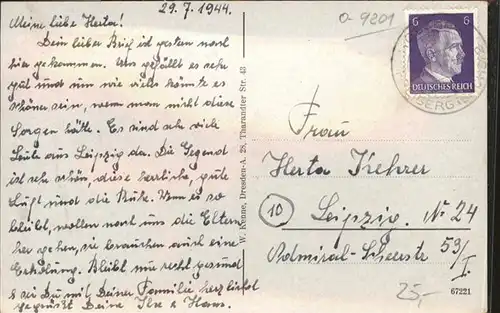 29. 7. 1944.
Meine liebe Herta!
Dein lieber Brief ist gestern noch
hier gekommen. Uns gefällt es sehr
gut und um wie viel könnte es
schöner sein, wenn man nicht diese
Sorgen hätte. Es sind sehr viele
Leute aus Leipzig da. Die Gegend
ist sehr schön, diese herrliche, gute
Luft und die Ruhe. Wenn es so
bleibt, wollen noch uns die Eltern
her gehen, sie brauchen auch eine
Erholung. Bleibt nur recht gesund
& sei Du mit Deiner Familie herzlichst
gegrüßt Deine Ilse & Hans.
W. Kenne, Dresden-A. 28, Tharandter Str. 43
a-9201
6 6
DEUTSCHES REICH
Frau
Herta Kehrer
10 Leipzig. N 24
Admiral-Scheerstr 53/I.
25,-
67221